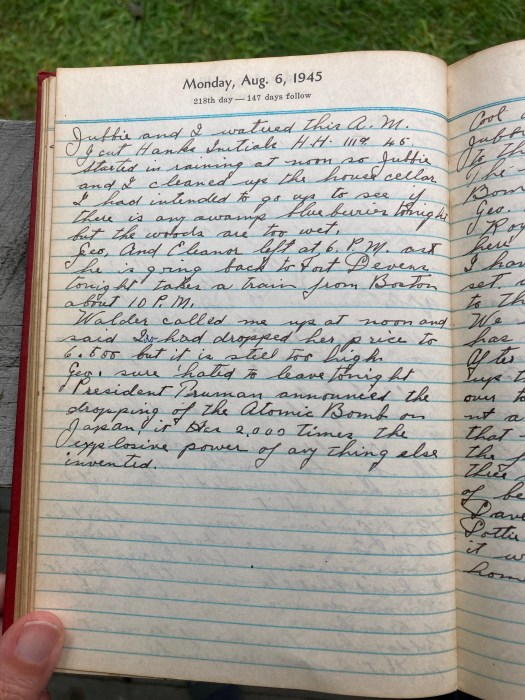 Monday, Aug. 6, 1945
218th day — 147 days follow
Jubbie and I watured this A. M.
I cut Hanks Initials H. H. 45
Started in raining at noon so Jubbie
and I cleaned up the house cellar
I had intended to go up to see if
there is any swamp blue buries tonight
but the woods are too wet.
Geo. And Eleanor left at 6. P.M. as
he is going back to Fort Devens
tonight takes a train from Boston
about 10 P.M.
Walder called me up at noon and
said had dropped her price to
6.500 but it is still too high.
Geo. sure hated to leave tonight
President Truman announced the
dropping of the Atomic Bomb on
Japan it has 2,000 times the
explosive power of any thing else
invented.
Cool
Jubb
to th
The
Bom
Geo.
Roy
here
I hav
set
to th
We
has
After
up t
over t
nt a
that
the
thre
of be
Dave
Dottie
it w
home